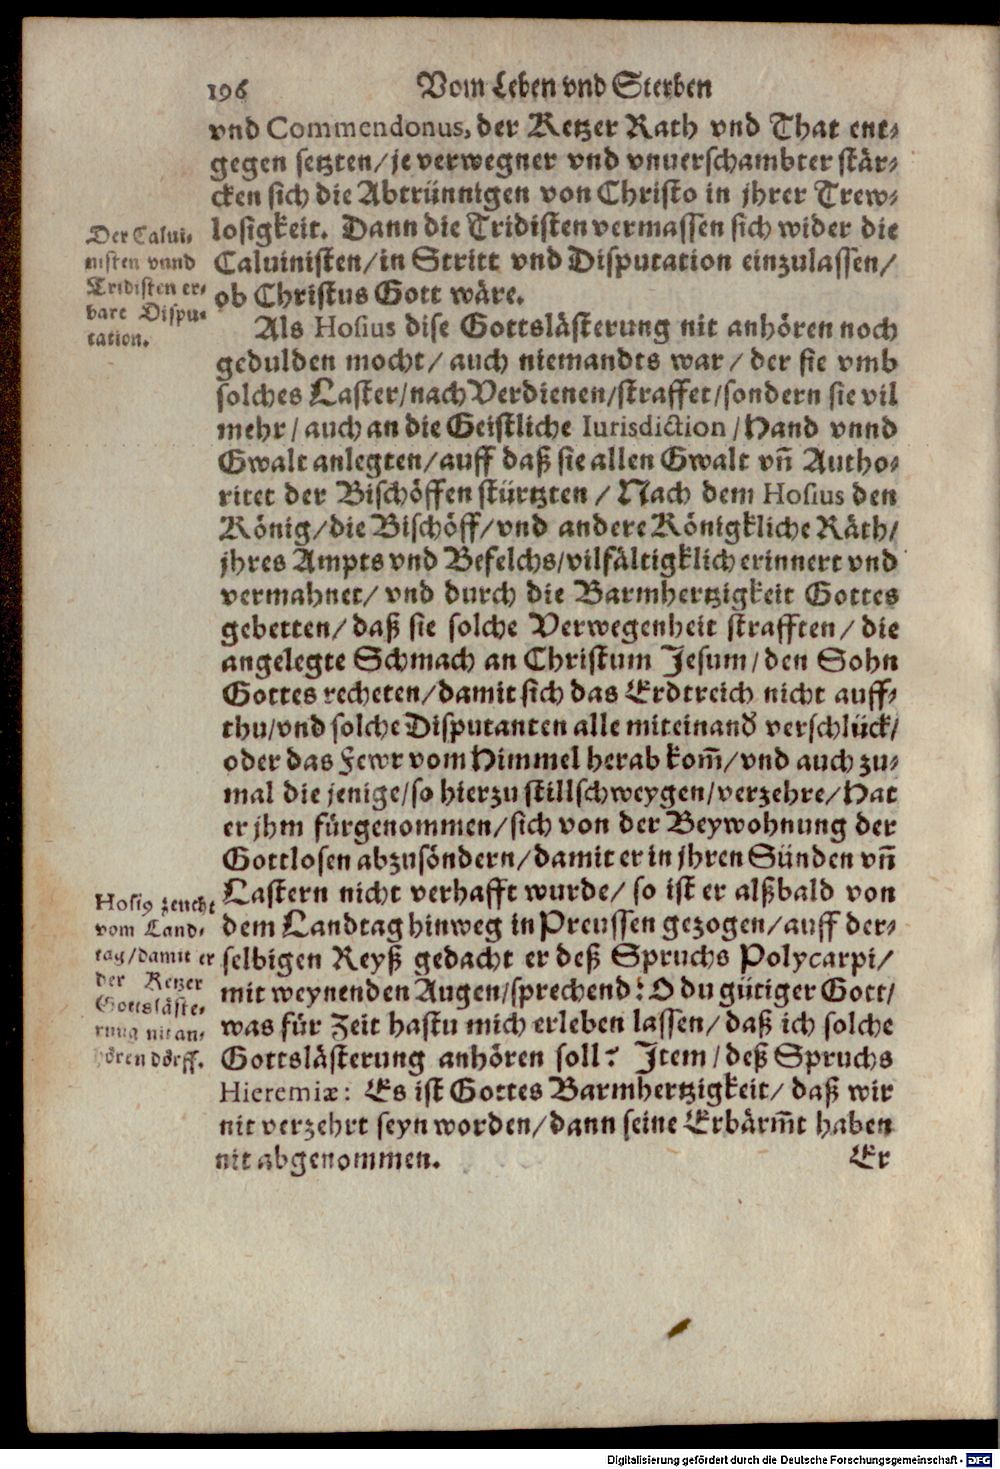 196 Vom Leben vnd Sterben
vnd Commendonus, der Ketzer Rath vnd That ent-
gegen setzten/ je verwegner vnd vnuerschambter stär-
cken sich die Abtrünnigen von Christo in jhrer Trew-
losigkeit. Dann die Tridisten vermassen sich wider die
Caluinisten/ in Stritt vnd Disputation einzulassen/
ob Christus Gott wäre.
Der Calui-
nisten vnnd
Tridisten er-
bare Dispu-
tation.
Als Hosius dise Gottslästerung nit anhören noch
gedulden mocht/ auch niemandts war/ der sie vmb
solches Laster/ nach Verdienen/ straffet/ sondern sie vil
mehr/ auch an die Geistliche Iurisdiction/ Hand vnnd
Gwalt anlegten/ auff daß sie allen Gwalt vn̄ Autho-
ritet der Bischöffen stürtzten/ Nach dem Hosius den
König/ die Bischöff/ vnd andere Königkliche Räth/
jhres Ampts vnd Befelchs/ vilfältigklich erinnert vnd
vermahnet/ vnd durch die Barmhertzigkeit Gottes
gebetten/ daß sie solche Verwegenheit strafften/ die
angelegte Schmach an Christum Jesum/ den Sohn
Gottes recheten/ damit sich das Erdtreich nicht auff-
thu/ vnd solche Disputanten alle miteinand̕ verschlück/
oder das Fewr vom Himmel herab kom̄/ vnd auch zu-
mal die jenige/ so hierzu stillschweygen/ verzehre/ Hat
er jhm fürgenommen/ sich von der Beywohnung der
Gottlosen abzusöndern/ damit er in jhren Sünden vn̄
Lastern nicht verhafft wurde/ so ist er alßbald von
dem Landtag hinweg in Preussen gezogen/ auff der-
selbigen Reyß gedacht er deß Spruchs Polycarpi/
mit weynenden Augen/ sprechend: O du gütiger Gott/
was für Zeit hastu mich erleben lassen/ daß ich solche
Gottslästerung anhören soll? Item/ deß Spruchs
Hieremiæ: Es ist Gottes Barmhertzigkeit/ daß wir
nit verzehrt seyn worden/ dann seine Erbärm̄t haben
nit abgenommen.
Hosiꝰ zeucht
vom Land-
tag/ damit er
der Ketzer
Gottsläste-
rung nit an-
hören dörff.
Er
Digitalisierung gefördert durch die Deutsche Forschungsgemeinschaft - DFG